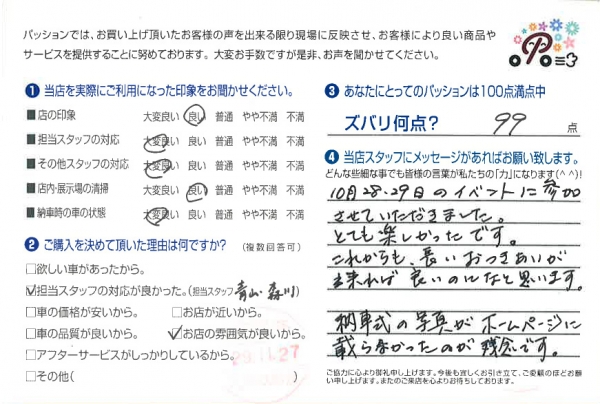 パッションでは、お買い上げ頂いたお客様の声を出来る限り現場に反映させ、お客様により良い商品や
サービスを提供することに努めております。大変お手数ですが是非、お声を聞かせてください。
1 当店を実際にご利用になった印象をお聞かせください。
■店の印象 大変良い 良い 普通 やや不満 不満
■担当スタッフの対応 大変良い 良い 普通 やや不満 不満
■その他スタッフの対応 大変良い 良い 普通 やや不満 不満
■店内・展示場の清掃 大変良い 良い 普通 やや不満 不満
■納車時の車の状態 大変良い 良い 普通 やや不満 不満
2 ご購入を決めて頂いた理由は何ですか？（複数回答可）
□欲しい車があったから。
☑担当スタッフの対応が良かった。（担当スタッフ 青山・森川）
□車の価格が安いから。 □お店が近いから。
□車の品質が良いから。 ☑お店の雰囲気が良いから。
□アフターサービスがしっかりしているから。
□その他( )
29.11.27
3 あなたにとってのパッションは100点満点中
ズバリ何点？ 99 点
4 当店スタッフにメッセージがあればお願い致します。
どんな些細な事でも皆様の言葉が私たちの「力」になります(^^)!
10月28.29日のイベントに参加
させていただきました。
とても楽しかったです。
これからも、長いおつきあいが
出来れば良いのになと思います。
納車式の写真がホームページに
載らなかったのが残念です。
ご協力に心より御礼申し上げます。今後も宜しくお引き立て、ご愛顧のほどお願
い申し上げます。またのご来店を心よりお待ちしております。